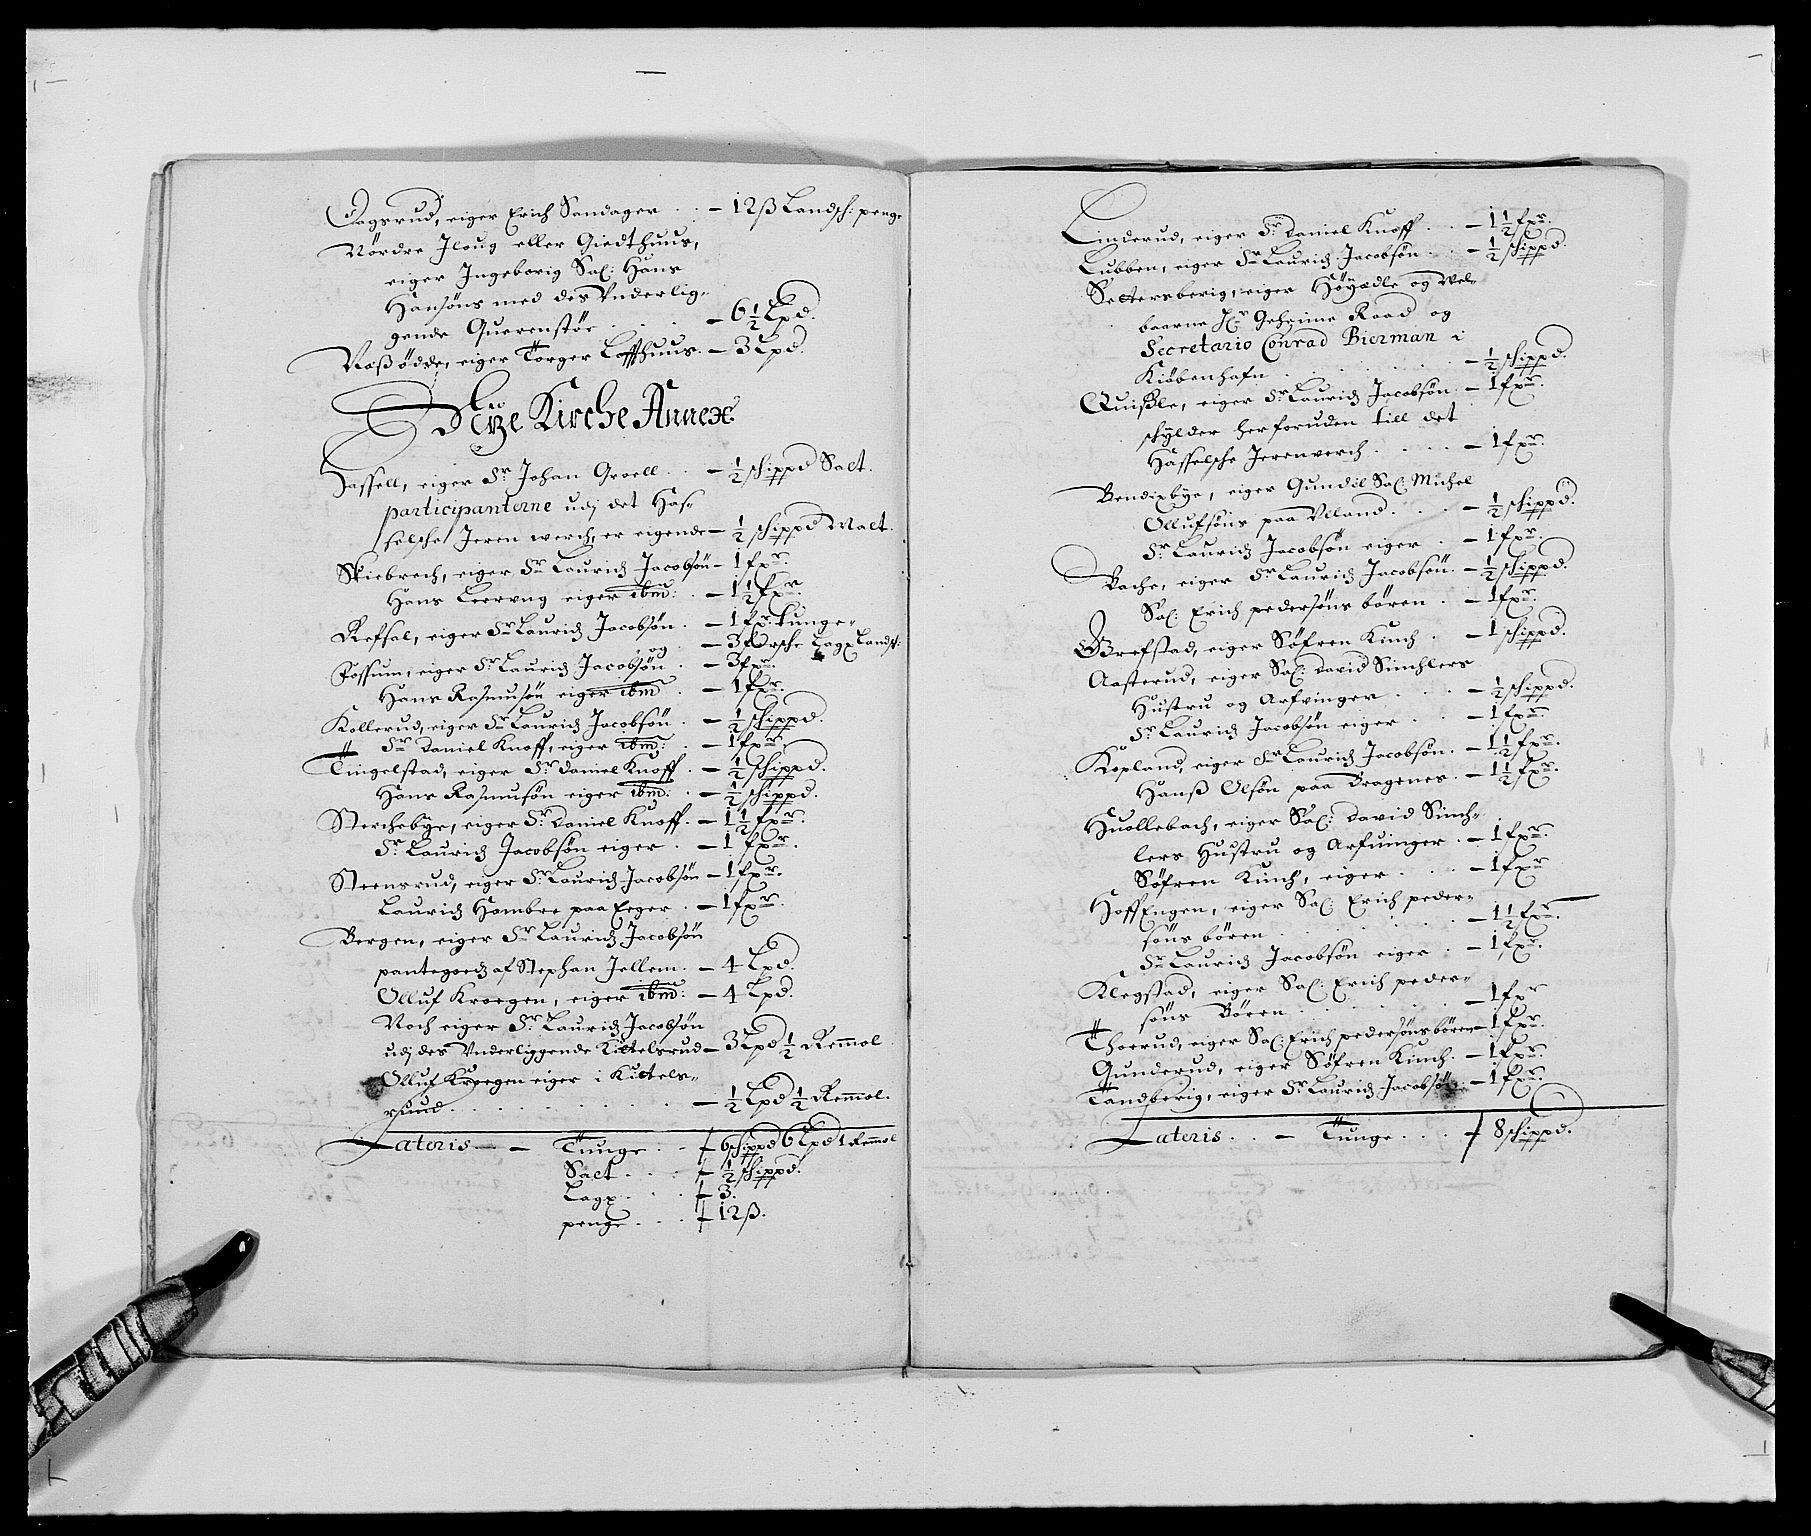 Dagsrud, eiger Erich Sandager . . – 12ß Landsch: penge
Nördre Jloug eller Giedthuus,
eiger Ingeborig Sal: Hans
Hansöns med des Vnderlig-
gende Querenstöe . . . . – 6½ Lpd.
Næßödde, eiger Torger Laffthuus. – 3 Lpd.
Schoze Kirche Annex
Hassell, eiger Sr Johan Groell . . – ½ schippd Salt.
participanterne udj det Has-
selsche Jeren werch, er eigende – ½ schippd Malt.
Skiebrech, eiger Sr Lauridz Jacobsön – 1 fxr.
Hans Leervng eiger ibm: . – 1½ fxr.
Refsal, eiger Sr Lauridz Jacobsön . – 1 fxr: tunge-
og – 3 Lagx Landsch:
Fossum, eiger Sr Lauridz Jacobsön . – 3 fxr.
Hans Rasmusön eiger ibm . – 1 fxr.
Kollerud, eiger Sr Lauridz Jacobsön . – ½ schippd.
Sr Daniel Knoff, eiger ibm: . – 1 fxr.
Tingelstad, eiger Sr Daniel Knoff . – ½ schippd.
Hans Rasmusön eiger ibm: . – ½ schippd.
Sterchebye, eiger Sr Daniel Knoff . – 1½ fxr.
Sr Lauridz Jacobsön eiger . – 1 fxr.
Steensrud, eiger Sr Lauridz Jacobsön – 1 fxr.
Lauridz Hambre paa Eeger . – 1 fxr.
Bergen, eiger Sr Lauridz Jacobsön
pantegoedz af Stephan Jellem . – 4 Lpd.
Olluf Kroegen, eiger ibm: – 4 Lpd.
Noch eiger Sr Lauridz Jacobsön
udj des Vnderliggende Kittelsrud – 3 Lpd ½ Remol
Olluf Kroegen eiger i Kittels-
ruud . . . . . . . – ½ Lpd ½ Remol.
Lateris – – Tunge . . 6 schippd 6 Lpd 1 Remol
Salt . . . ½ schippd.
Lagx . . . 3.
penge . . . 12ß.
Linderud, eiger Sr Daniel Knoff . . – 1½ fxr.
Lubben, eiger Sr Lauridz Jacobsön . . – ½ schippd.
Settersberig, eiger Höyædle og Wel-
baarne Hr Geheime Raad og
Secretario Conrad Bierman i
Kiöbenhafn . . . . . . – ½ schippd.
Quisle, eiger Sr Lauridz Jacobsön – 1 fxr.
schylder herforuden till det
Hasselsche Jerenverch . . . . – 1 fxr.
Bendixbye, eiger Gundil Sal: Michel
Ollufsöns paa Vlland . . . – ½ schippd.
Sr Lauridz Jacobsön eiger . – 1 fxr.
Bache, eiger Sr Lauridz Jacobsön . – ½ schippd.
Sal: Erich pedersöns bören . – 1 fxr.
Grefstad, eiger Söfren Kinch . – 1 schippd.
Aasterud, eiger Sal: David Sinchlers
Hustru og Arfvinger . . . – ½ schippd.
Sr Lauridz Jacobsön eiger . . – 1 fxr.
Kopland, eiger Sr Lauridz Jacobsön . – 1½ fxr.
Hanß Olsön paa Bragenes . – 1½ fxr.
Huollebach, eiger Sal: David Sinch-
lers Hustru og Arfuinger . – 1 fxr.
Söfren Kinch, eiger . . . – 1 fxr
HoffEngen, eiger Sal: Erich peder-
söns bören . . . . . . – 1½ fxr.
Sr Lauridz Jacobsön eiger . – 1 fxr.
Klegstad, eiger Sal: Erich peder-
söns Bören . . . . . – 1 fxr
Thoerud, eiger Sal: Erich pedersöns bören – 1 fxr.
Gunderud, eiger Söfren Kinch . – 1 fxr.
Tandberig, eiger Sr Lauridz Jacobsön . – 1 fxr.
Lateris . . – Tunge . . . 8 schippd.